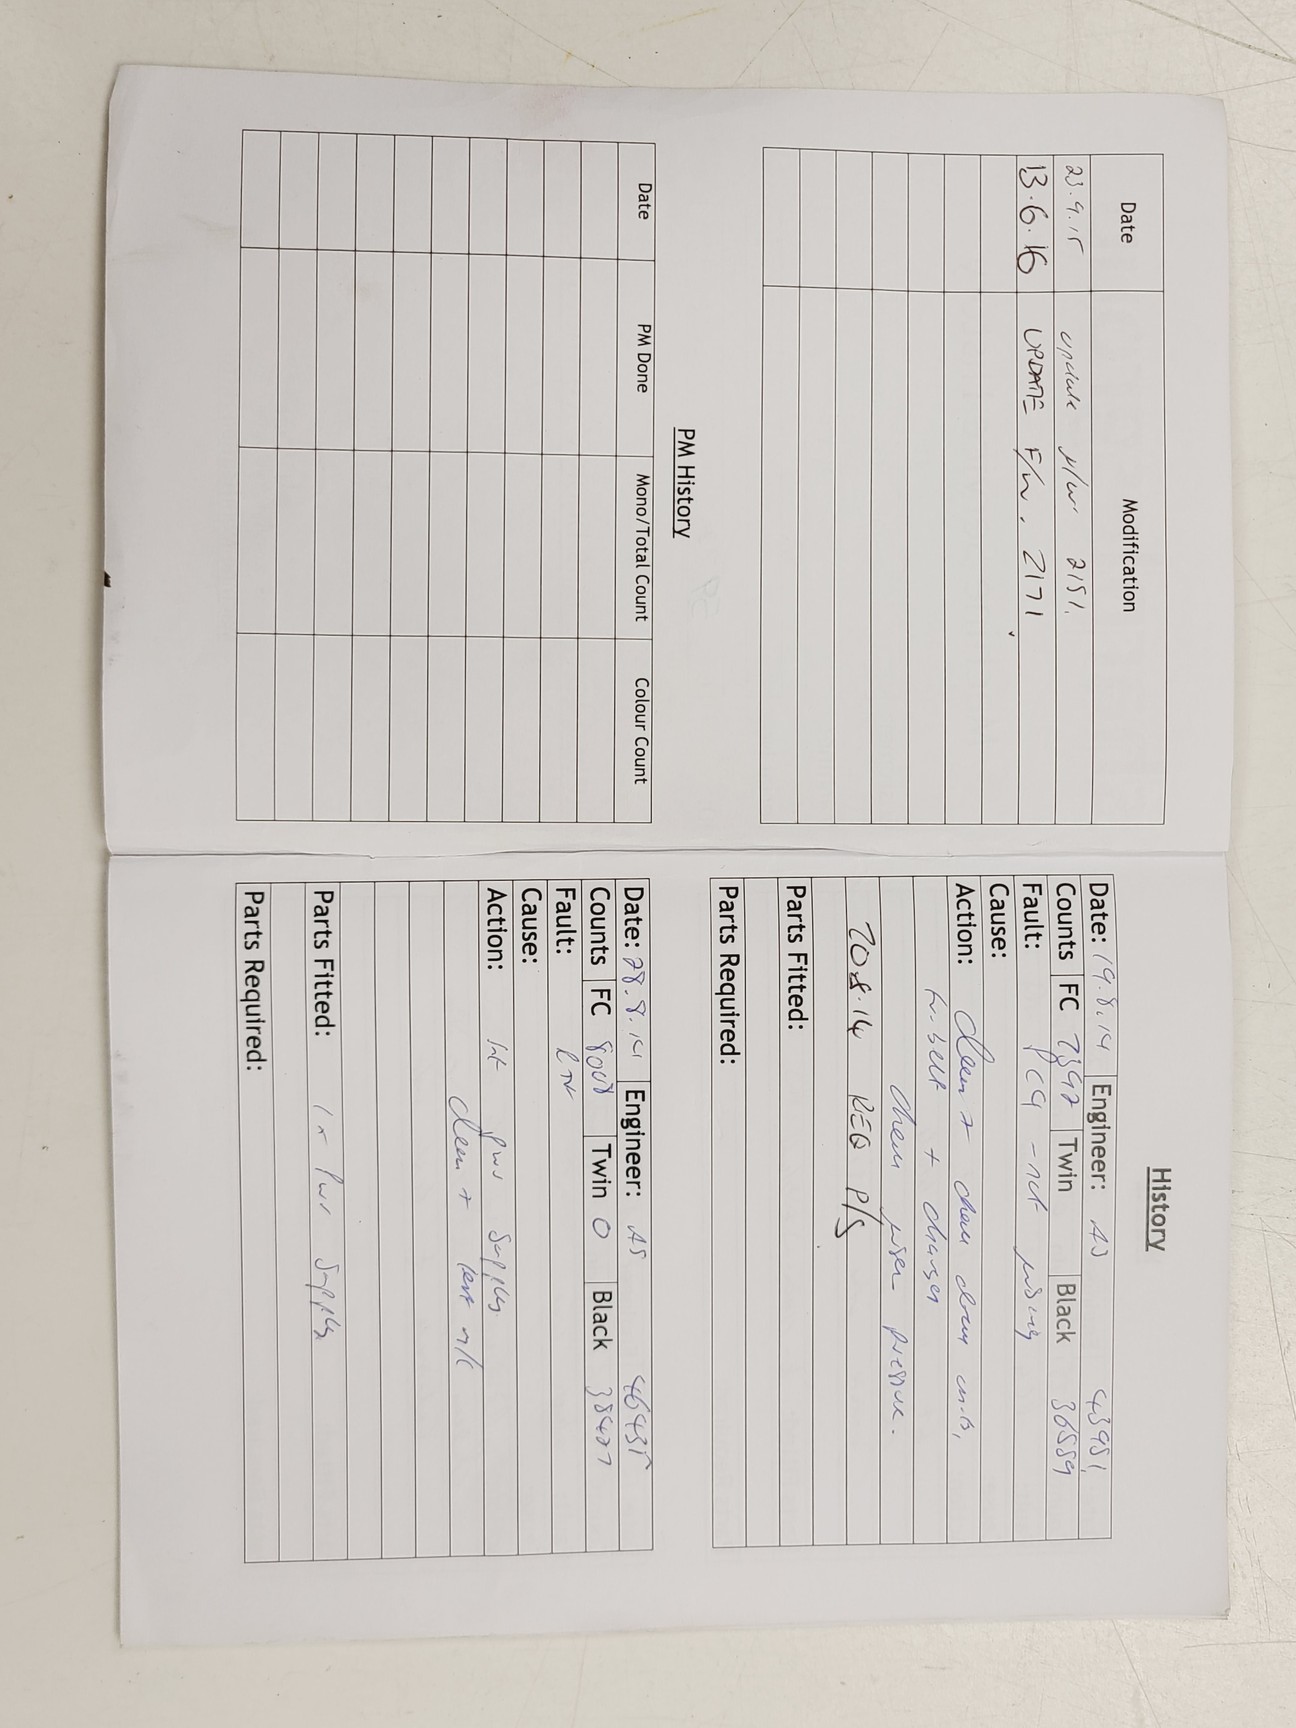 Date Modification
23.9.15 update 2151.
13.6.16 UPDATE F/W. 2171
PM History
Date PM Done Mono/Total Count Colour Count
History
Date: 19.8.14 Engineer: AS 43951
Counts FC 7392 Twin Black 36559
Fault: - not
Cause:
Action: clean + clean
+ charger
pressure.
20.8.14 REQ P/S
Parts Fitted:
Parts Required:
Date: 28.8.14 Engineer: AS 46435
Counts FC 8008 Twin 0 Black 38427
Fault:
Cause:
Action: pwr supply.
clean + test m/c
Parts Fitted: 1 x Pwr Supply
Parts Required: